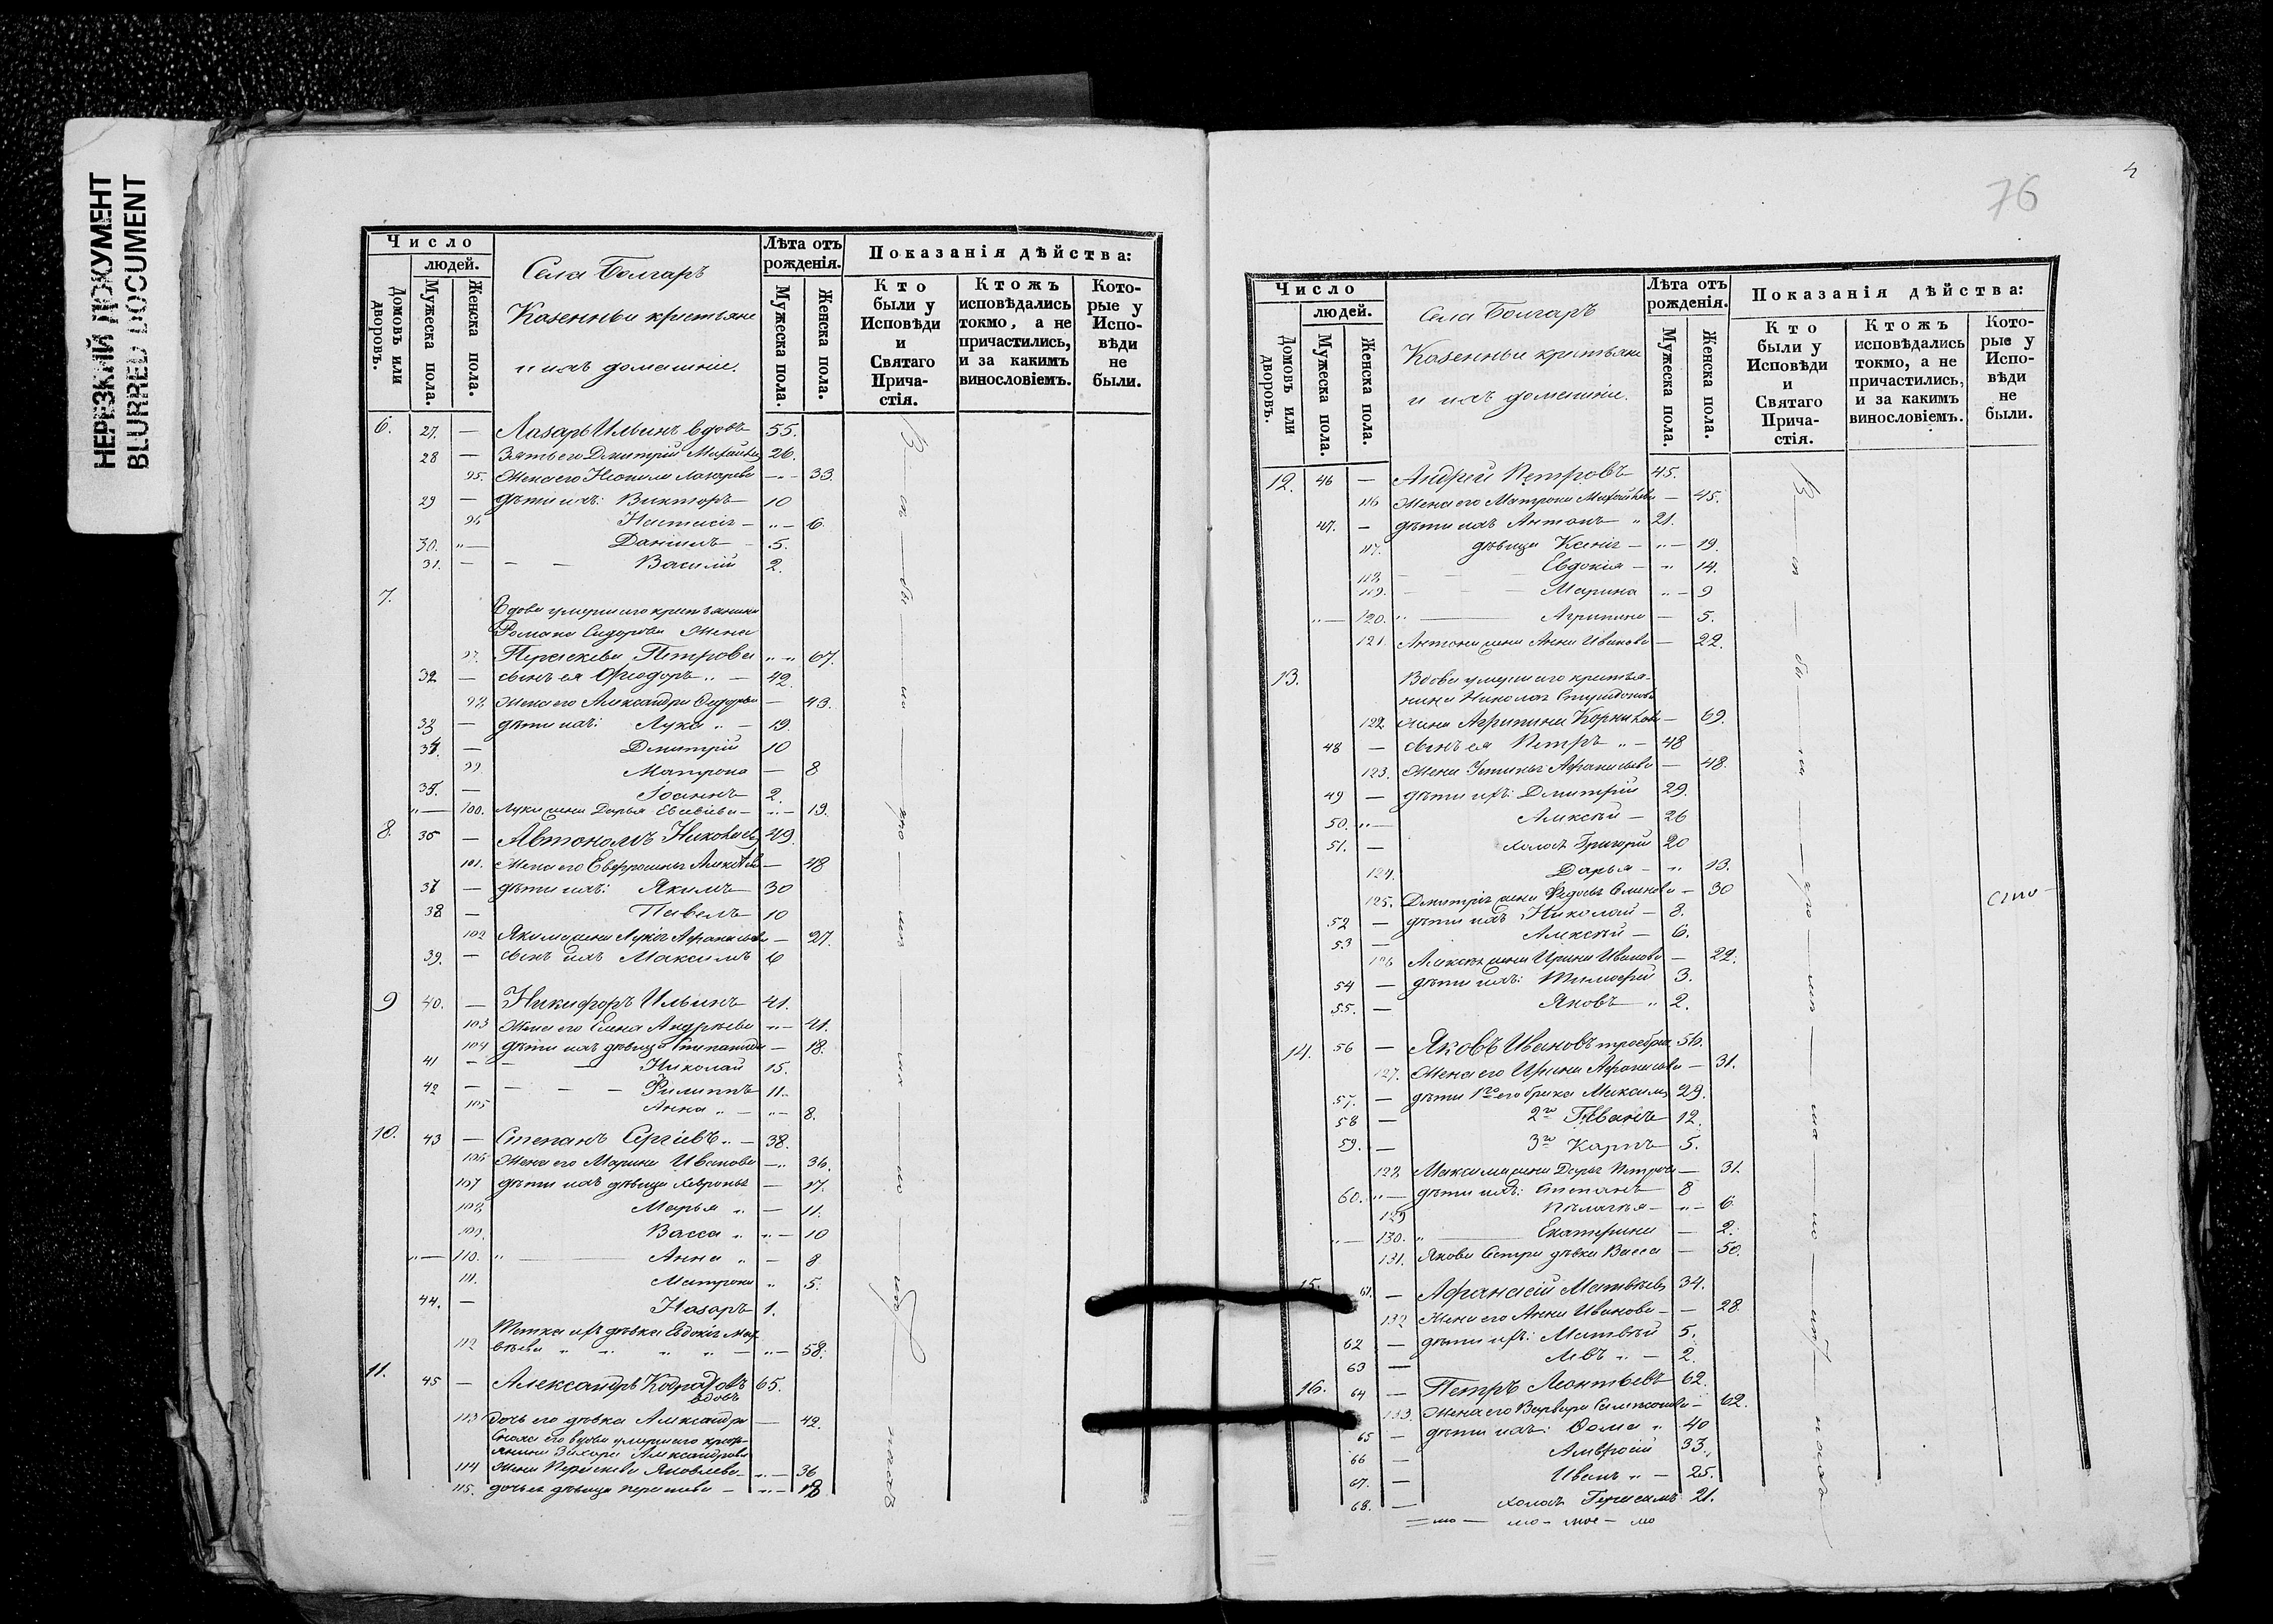 НЕРЕЗКИЙ ДОКУМЕНТ
BLURRED DOCUMENT
Число
людей.
Домовъ или дворовъ.
Мужеска пола.
Женска пола.
Села Болгаръ
Казенныи крестьяне
и ихъ домашніе.
Лѣта отъ рожденія.
Мужеска пола.
Женска пола.
Показанія дѣйства:
Кто были у Исповѣди и Святаго Прича-стія.
Ктожъ исповѣдались токмо, а не причастились, и за какимъ винословіемъ.
Кото-рые у Испо-вѣди не были.
6. 27. — Лазарь Ильинъ вдовъ 55.
28 — Зять его Дмитрій Михайловъ 26.
95. Жена его Лазарева — 33.
29 — дѣти ихъ: Викторъ 10
96 Настасія — 6.
30. — Даніилъ 5.
31. — Василій 2.
7. Вдова умершаго крестьянина
Романа Сидорова жена
97. Параскева Петрова 67.
32 — сынъ ея Ѳеодоръ 42.
98. Жена его Александра — 43.
33 — дѣти ихъ: Лука 19.
34. — Дмитрій 10
99. Матрона — 8
35. — Іоаннъ 2.
100. Луки жена Дарья — 19.
8. 36 — Автономъ Николаевъ 49.
101. Жена его Евфросинья Алексѣева — 48
37 — дѣти ихъ: Якимъ 30
38 — Павелъ 10
102 Якима жена Афанасьева — 27.
39. — сынъ ихъ Максимъ 6
9 40. — Никифоръ Ильинъ 41.
103 Жена его Елена Андреева — 41.
104 дѣти ихъ дѣвица Степанида — 18.
41 — Николай 15.
42 — Филиппъ 11.
105 Анна — 8.
10. 43 — Степанъ Сергіевъ 38.
106 Жена его Марина Иванова — 36.
107 дѣти ихъ дѣвица Хавронья — 17.
108 Марья — 11.
109. Васса — 10
110. Анна — 8
111. Матрона 5.
44. — Назаръ 1.
Тетка ихъ дѣвка Евдокія Мат-
112 вѣева — 58.
11. 45 — Александръ 65.
вдовъ
113 Дочь его дѣвка Александра — 42.
Сноха его вдова умершаго кресть-
янина Захара Александрова
114 жена Параскева Яковлева — 36
115. дочь ея дѣвица Параскева — 18
76
4
Число
людей.
Домовъ или дворовъ.
Мужеска пола.
Женска пола.
Села Болгаръ
Казенныи крестьяне
и ихъ домашніе.
Лѣта отъ рожденія.
Мужеска пола.
Женска пола.
Показанія дѣйства:
Кто были у Исповѣди и Святаго Прича-стія.
Ктожъ исповѣдались токмо, а не причастились, и за какимъ винословіемъ.
Кото-рые у Испо-вѣди не были.
12. 46 — Андрей Петровъ 45.
116 Жена его Матрона Михайлова — 45.
47. — дѣти ихъ Антонъ 21.
117. дѣвица Ксенія — 19.
118 Евдокія — 14.
119. Марина — 9
120. Агрипина — 5.
121 Антона жена Анна Иванова — 22.
13. Вдова умершаго крестья-
нина Николая
122 жена Агрипина — 69.
48 — сынъ ея Петръ 48
123. Жена Устинья Афанасьева — 48.
49 — дѣти ихъ: Дмитрій 29.
50. — Алексѣй 26
51. — холостъ Григорій 20
124. Дарья — 13.
125. Дмитрія жена — 30
52 — дѣти ихъ Николай 8.
53 — Алексѣй 6.
126 Алексѣя жена Ирина Иванова — 22.
54 — дѣти ихъ: Тимофей 3.
55. — Яковъ 2.
14. 56 — Яковъ Ивановъ 56.
127. Жена его Ирина Афанасьева — 31.
57. — дѣти 1го его брака Максимъ 29.
58 — 2го Иванъ 12.
59. — 3го Карпъ 5.
128 Максима жена Дарья Петрова — 31.
60. — дѣти ихъ: Степанъ 8
129 Пелагѣя — 6
130. Екатерина — 2.
131. Якова сестра дѣвка Васса — 50.
15. 61. — Афанасій Матвѣевъ 34.
132 Жена его Анна Иванова — 28.
62 — дѣти ихъ: Матвѣй 5.
63 — Левъ 2.
16. 64 — Петръ Леонтьевъ 62.
133. Жена его Варвара — 62.
65 — дѣти ихъ: Ѳома 40
66 — Амвросій 33.
67. — Иванъ 25.
68. — холостъ Герасимъ 21.